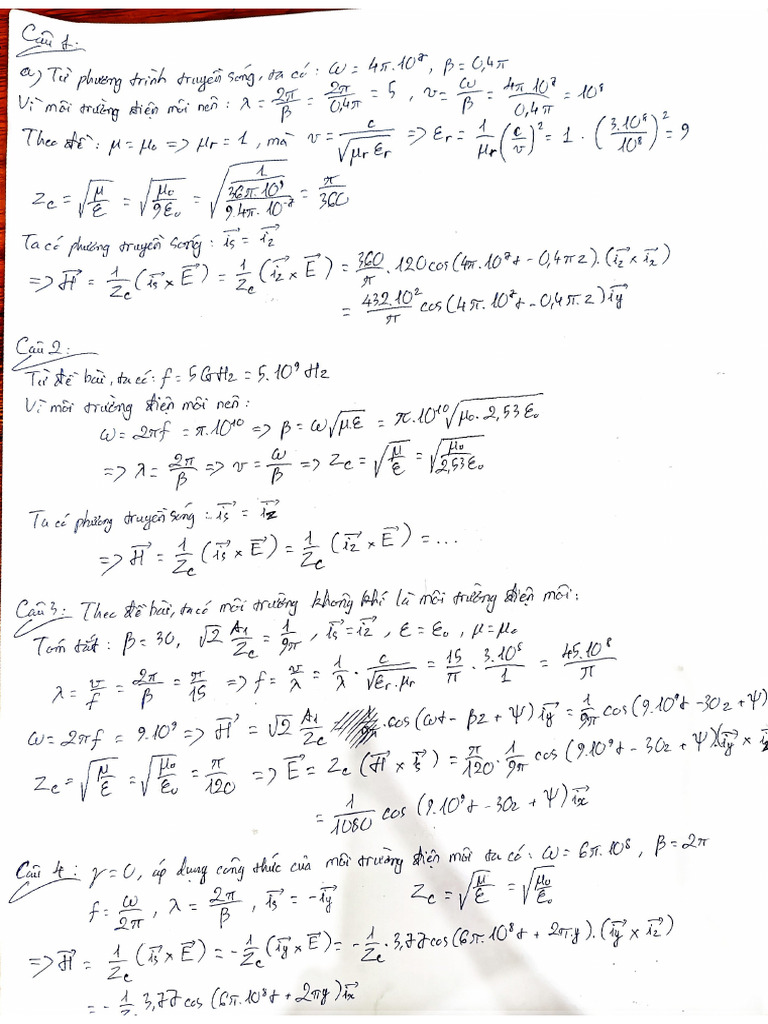 Câu 1:
a) Từ phương trình truyền sóng, ta có: ω = 4π.10⁷, β = 0,4π
Vì môi trường điện môi nên: λ = 2π/β = 2π/0,4π = 5, v = ω/β = 4π.10⁷/0,4π = 10⁸
Theo đề: μ = μ₀ => μr = 1, mà v = c/√(μr εr) => εr = 1/μr (c/v)² = 1 . (3.10⁸/10⁸)² = 9
Zc = √(μ/ε) = √(μ₀/9ε₀) = √((1/36π.10⁹)/(9.4π.10⁻⁷)) = π/360
Ta có phương truyền sóng: i⃗s = i⃗z
=> H⃗ = 1/Zc (i⃗s × E⃗) = 1/Zc (i⃗z × E⃗) = 360/π . 120cos(4π.10⁷t - 0,4πz).(i⃗z × i⃗x)
= 432.10²/π cos(4π.10⁷t - 0,4π.z) i⃗y
Câu 2:
Từ đề bài, ta có: f = 5GHz = 5.10⁹ Hz
Vì môi trường điện môi nên:
ω = 2πf = π.10¹⁰ => β = ω√(μ.ε) = π.10¹⁰√(μ₀.2,53ε₀)
=> λ = 2π/β => v = ω/β => Zc = √(μ/ε) = √(μ₀/2,53ε₀)
Ta có phương truyền sóng: i⃗s = i⃗z
=> H⃗ = 1/Zc (i⃗s × E⃗) = 1/Zc (i⃗z × E⃗) = ...
Câu 3: Theo đề bài, ta có môi trường không khí là môi trường điện môi:
Tóm tắt: β = 30, √2 A₁/Zc = 1/9π, i⃗s = i⃗z, ε = ε₀, μ = μ₀
λ = v/f = 2π/β = π/15 => f = v/λ = 1/λ . c/√(εr.μr) = 15/π . 3.10⁸/1 = 45.10⁸/π
ω = 2πf = 9.10⁹ => H⃗ = √2 A₁/Zc .cos(ωt - βz + Ψ) i⃗y = 1/9π cos(9.10⁹t - 30z + Ψ)
Zc = √(μ/ε) = √(μ₀/ε₀) = π/120 => E⃗ = Zc (H⃗ × i⃗s) = π/120 . 1/9π cos(9.10⁹t - 30z + Ψ)(i⃗y × i⃗z
= 1/1080 cos(9.10⁹t - 30z + Ψ) i⃗x
Câu 4: γ = 0, áp dụng công thức của môi trường điện môi ta có: ω = 6π.10⁸, β = 2π
f = ω/2π, λ = 2π/β, i⃗s = -i⃗y Zc = √(μ/ε) = √(μ₀/ε₀)
=> H⃗ = 1/Zc (i⃗s × E⃗) = -1/Zc (i⃗y × E⃗) = -1/Zc . 3,77cos(6π.10⁸t + 2πy).(i⃗y × i⃗z)
= -1/Z. 3,77cos(6π.10⁸t + 2πy) i⃗x